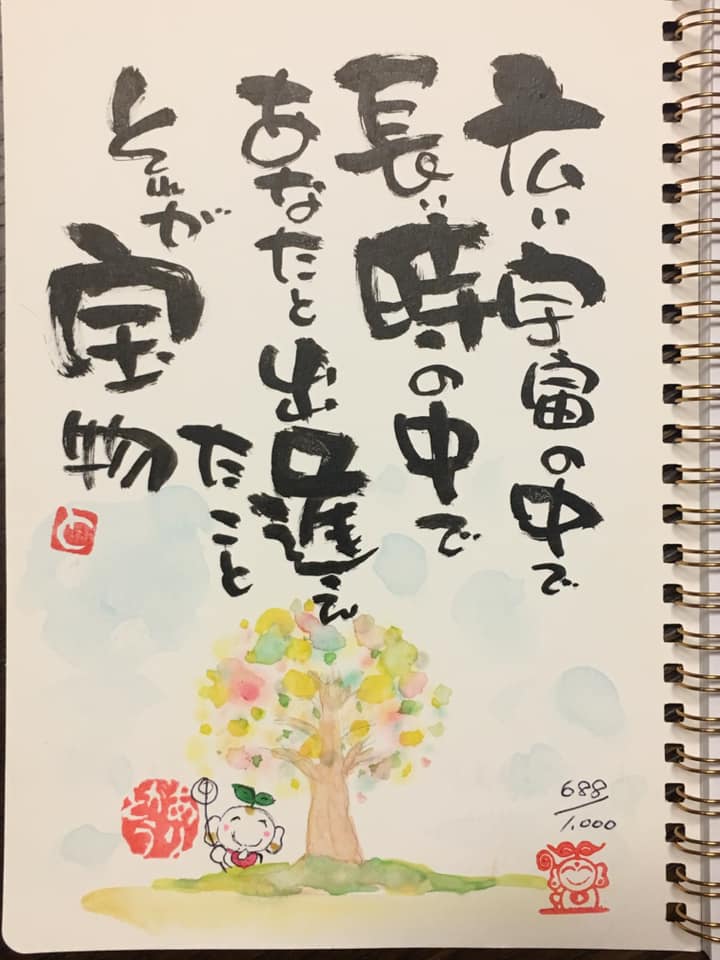 広い宇宙の中で
長い時の中で
あなたと出逢え
たこと
それが宝物
ありがとう
688/1,000